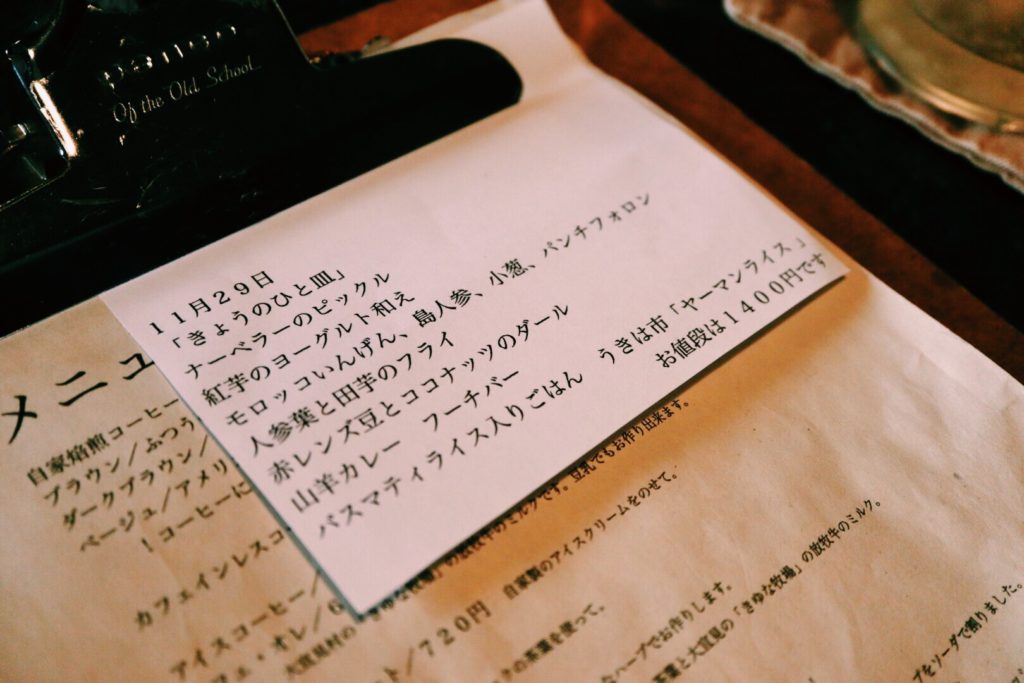 Of the Old School
11月29日
「きょうのひと皿」
ナーベラーのピックル
紅芋のヨーグルト和え
モロッコいんげん、島人参、小葱、パンチフォロン
人参葉と田芋のフライ
赤レンズ豆とココナッツのダール
山羊カレー　フーチバー
バスマティライス入りごはん　うきは市「ヤーマンライス」
お値段は1400円です
メニュ
自家焙煎コーヒー
ブラウン/ふつう/
ダークブラウン/
ベージュ/アメリ
!コーヒーに
カフェインレスコ
アイスコーヒー/
フェ・オレ/6
大宜見村の「きゆな牧場」の放牧牛のミルクです。豆乳でもお作り出来ます。
ト/720円　自家製のアイスクリームをのせて。
の茶葉を使って。
なハーブでお作りします。
茶葉と大宜見の「きゆな牧場」の放牧牛のミルク。
プをソーダで割りました。